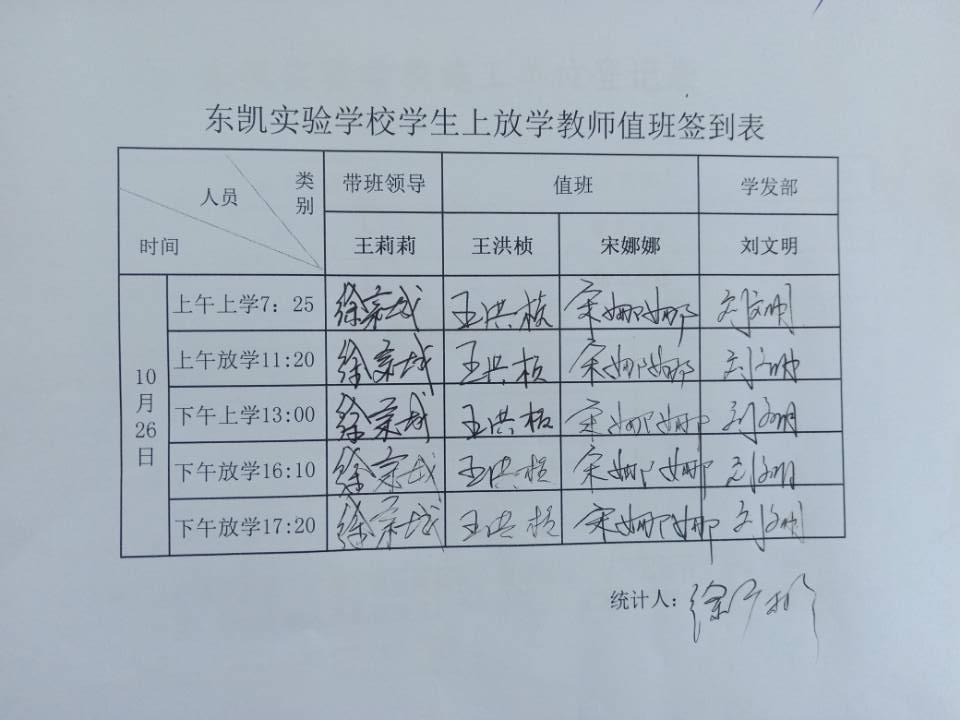 东凯实验学校学生上放学教师值班签到表
人员 类别 带班领导 值班 学发部
时间 王莉莉 王洪桢 宋娜娜 刘文明
10月26日
上午上学7：25 徐宗城 王洪桢 宋娜娜 刘文明
上午放学11:20 徐宗城 王洪桢 宋娜娜 刘文明
下午上学13:00 徐宗城 王洪桢 宋娜娜 刘文明
下午放学16:10 徐宗城 王洪桢 宋娜娜 刘文明
下午放学17:20 徐宗城 王洪桢 宋娜娜 刘文明
统计人：徐